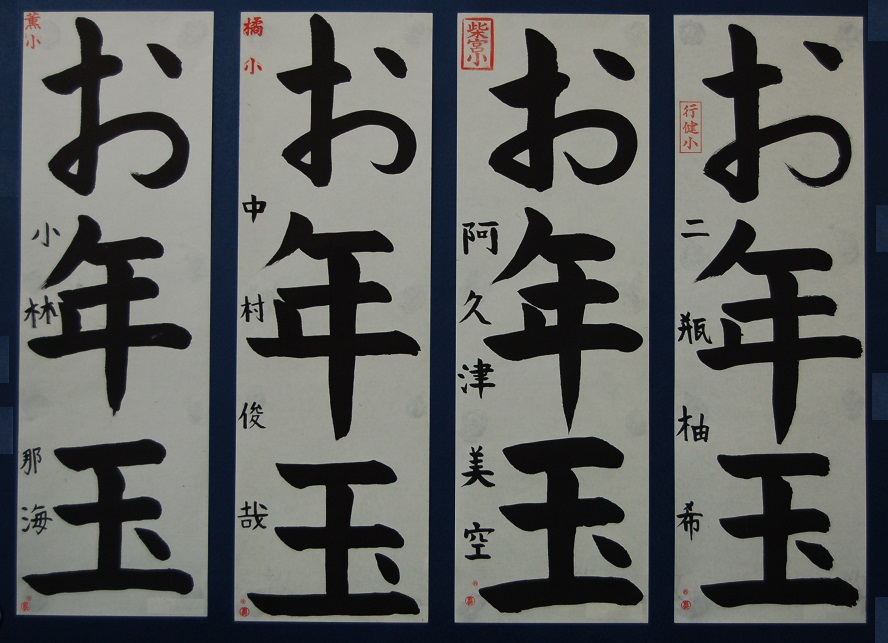 お年玉
行健小
二瓶柚希
お年玉
柴宮小
阿久津美空
お年玉
橘小
中村俊哉
お年玉
薫小
小林那海